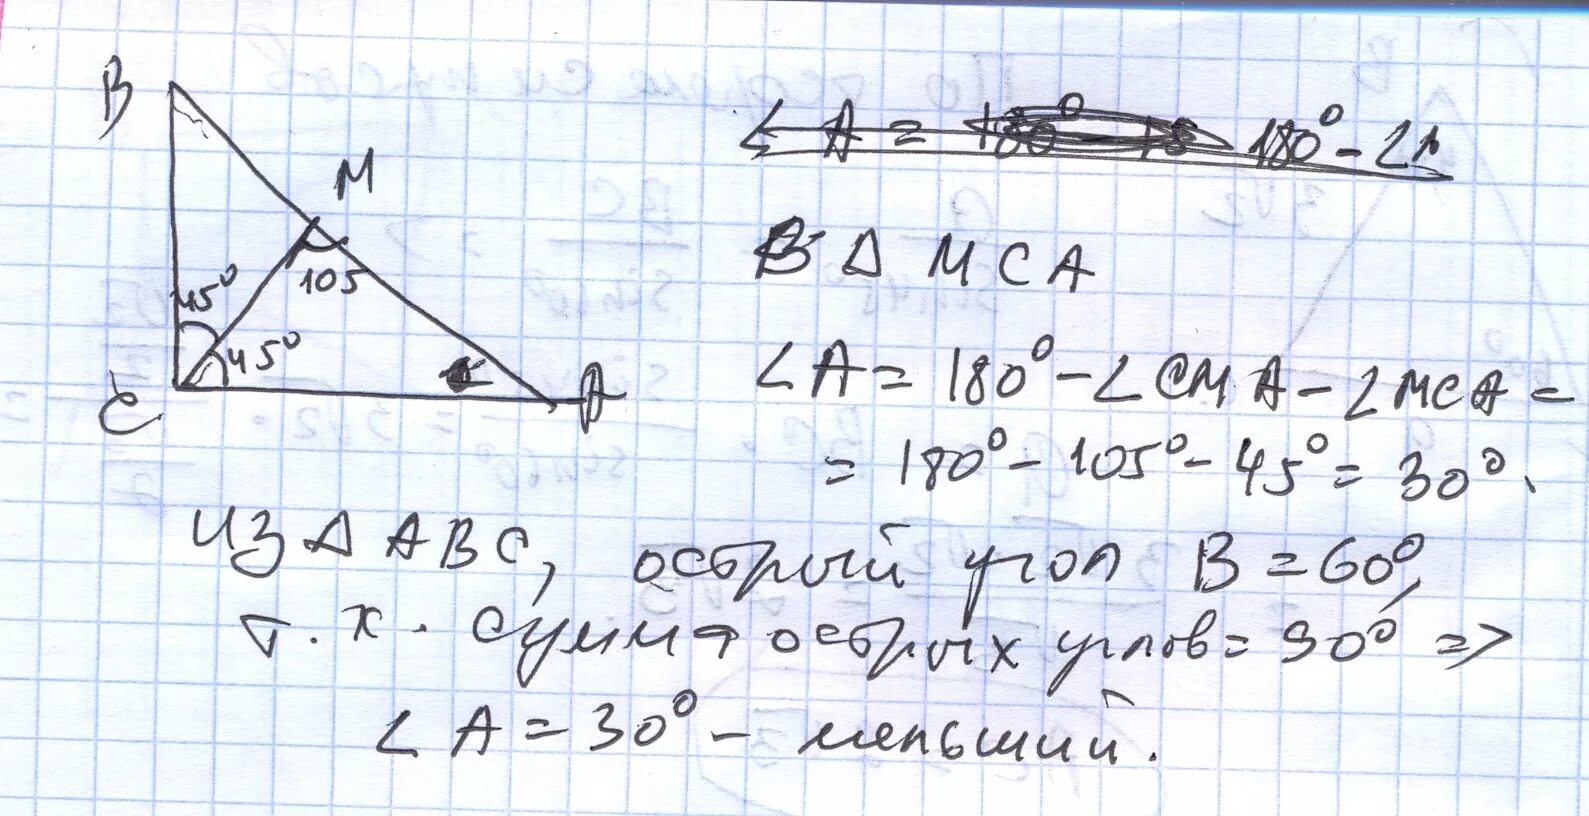 B
M
45°
105
45°
C
A
∠A = 180° - 18 180° - 2A
В Δ MCA
∠A = 180° - ∠CMA - ∠MCA =
= 180° - 105° - 45° = 30°.
Из Δ ABC, острый угол B = 60°,
т.к. сумма острых углов = 90° =>
∠A = 30° - меньший.